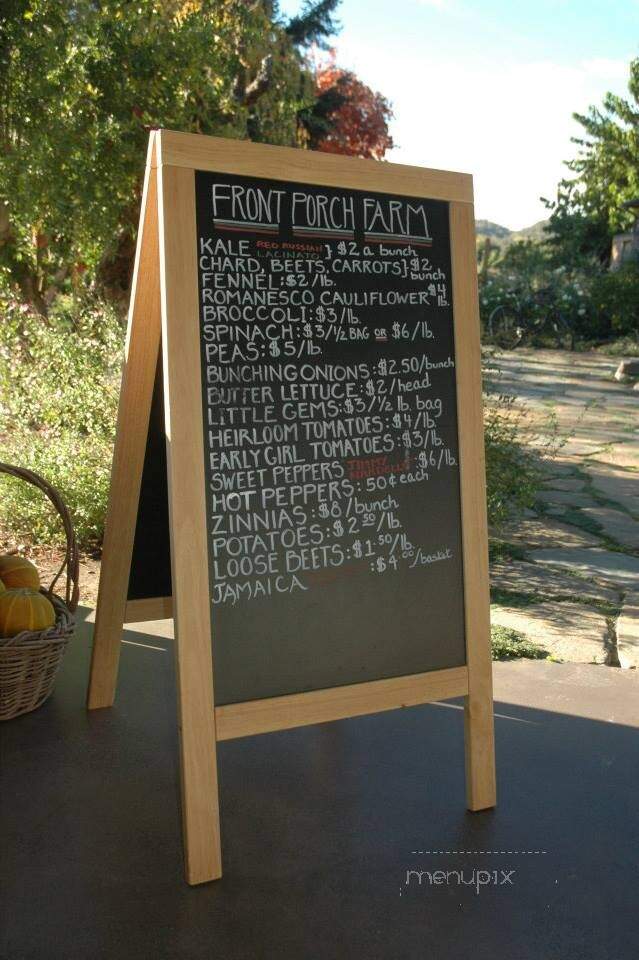 FRONT PORCH FARM
KALE RED RUSSIAN LACINATO } $2 a bunch
CHARD, BEETS, CARROTS } $2 bunch
FENNEL: $2/lb.
ROMANESCO CAULIFLOWER $4 lb.
BROCCOLI: $3/lb.
SPINACH: $3/½ BAG OR $6/lb.
PEAS: $5/lb.
BUNCHING ONIONS: $2.50/bunch
BUTTER LETTUCE: $2/head
LITTLE GEMS: $3/½ lb. bag
HEIRLOOM TOMATOES: $4/lb.
EARLY GIRL TOMATOES: $3/lb.
SWEET PEPPERS JIMMY NARDELLO : $6/lb.
HOT PEPPERS: 50¢ each
ZINNIAS: $8/bunch
POTATOES: $2.50/lb.
LOOSE BEETS: $1.50/lb.
JAMAICA : $4.00/basket
menupix